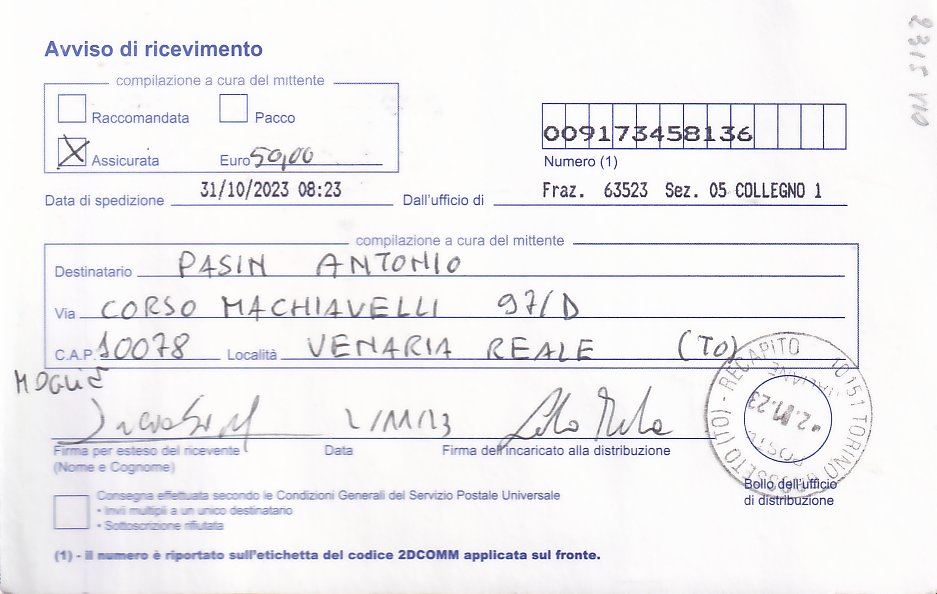 Avviso di ricevimento
compilazione a cura del mittente
Raccomandata Pacco
Assicurata Euro 50,00
009173458136
Numero (1)
Data di spedizione 31/10/2023 08:23 Dall'ufficio di Fraz. 63523 Sez. 05 COLLEGNO 1
compilazione a cura del mittente
Destinatario PASIN ANTONIO
Via CORSO MACHIAVELLI 97/D
C.A.P. 10078 Località VENARIA REALE (TO)
MOGLIE
Firma per esteso del ricevente Data Firma dell'incaricato alla distribuzione
(Nome e Cognome)
RECAPITO 10151 TORINO
POSTE
Bollo dell'ufficio
di distribuzione
Consegna effettuata secondo le Condizioni Generali del Servizio Postale Universale
• Invii multipli a un unico destinatario
• Sottoscrizione rifiutata
(1) - il numero è riportato sull'etichetta del codice 2DCOMM applicata sul fronte.